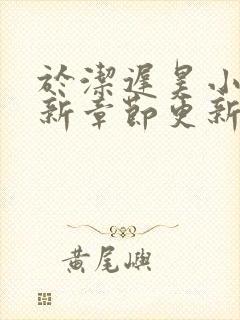 於潔遲昊小
新章節更新
黃尾嶼